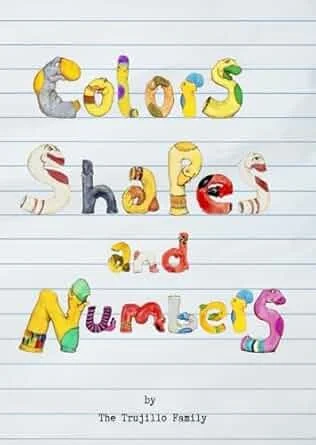 Colors
Shapes
and
Numbers
by
The Trujillo Family